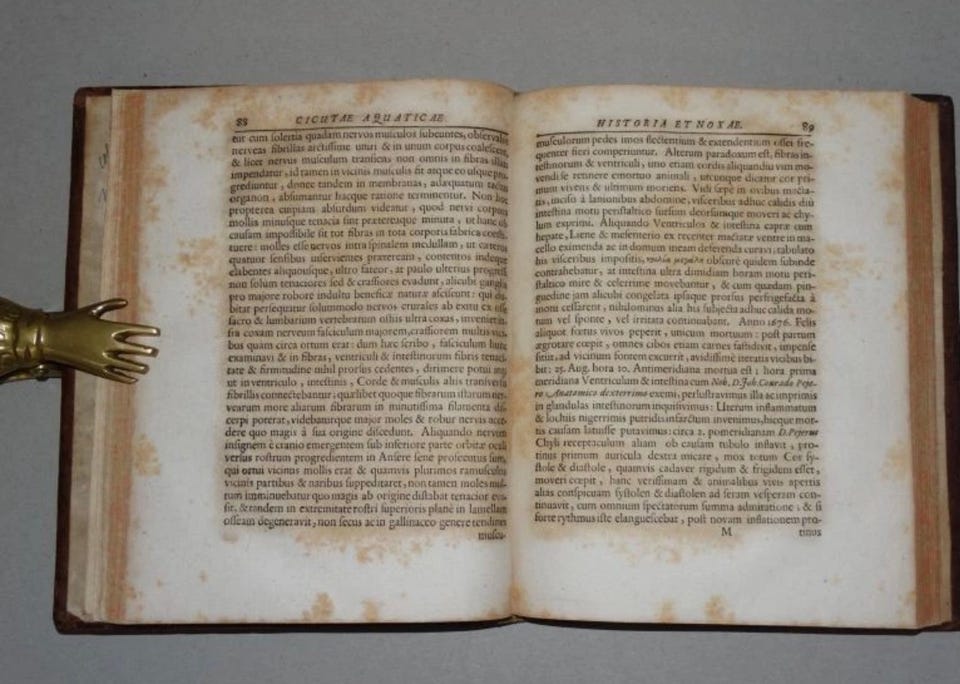 88 CICUTAE AQUATICAE
eur cum solertia quadam nervos musculos subeuntes, observabis
nerveas fibrillas arctissime uniri & in unum corpus coalescere,
& licet nervus musculum transiens non omnis in fibras illas
impendatur, id tamen in vicinis musculis fit atque eo usque pro-
grediuntur, donec tandem in membranas, adaquatum tactus
organon, absumantur hacque ratione terminentur. Non hoc
propterea cuipiam absurdum videatur, quod nervi corpora
mollis minusque tenacia sint praetereaque minuta, ut hanc ob
causam impossibile sit tot fibras in tota corporis fabrica consti-
tuere: molles esse nervos intra spinalem medullam, ut caeteros
quatuor sensibus inservientes praeteream, contentos indeque
elabentes aliquousque, ultro fateor, at paulo ulterius progressi
non solum tenaciores sed & crassiores evadunt, alicubi ganglia
pro majore robore indultu beneficae naturae asciscunt: qui du-
bitat persequatur solummodo nervos crurales ab exitu ex osse
sacro & lumbarium vertebrarum ossibus ultra coxas, inveniet in-
fra coxam nerveum fasciculum majorem, crassiorem multis vici-
bus quam circa ortum erat: dum haec scribo, fasciculum hunc
examinavi & in fibras, ventriculi & intestinorum fibris tenaci-
tate & firmitudine nihil prorsus cedentes, dirimere potui imo
ut in ventriculo, intestinis, Corde & musculis aliis transversis
fibrillis connectebantur: quaelibet quoque fibrarum istarum ner-
vearum more aliarum fibrarum in minutissima filamenta dis-
cerpi poterat, videbaturque major moles & robur nervis acce-
dere quo magis à sua origine discedunt. Aliquando nervum
insignem è cranio emergentem sub inferiore parte orbitae oculi
versus rostrum progredientem in Ansere sene prosecutus sum,
qui ortui vicinus mollis erat & quamvis plurimos ramusculos
vicinis partibus & naribus suppeditaret, non tamen moles mul-
tum imminuebatur quo magis ab origine distabat tenacior eva-
sit, & tandem in extremitate rostri superioris planè in lamellam
osseam degeneravit, non secus ac in gallinaceo genere tendines
muscu-
HISTORIA ET NOXAE. 89
musculorum pedes imos flectentium & extendentium ossei fre-
quenter fieri comperiuntur. Alterum paradoxum est, fibras in-
testinorum & ventriculi, uno etiam cordis aliquandiu vim mo-
vendi se retinere emortuo animali, utcunque dicatur cor pri-
mum vivens & ultimum moriens. Vidi saepe in ovibus macta-
tis, inciso à lanionibus abdomine, visceribus adhuc calidis diù
intestina motu peristaltico sursum deorsumque moveri ac chy-
lum exprimi. Aliquando Ventriculos & intestina caprae cum
hepate, Liene & mesenterio ex recenter mactatae ventre in ma-
cello eximenda ac in domum meam deferenda curavi; tabulato
his visceribus impositis, κοιλία μεγάλη obscurè quidem subinde
contrahebatur, at intestina ultra dimidiam horam motu peri-
staltico mire & celerrime movebantur, & cum quadam pin-
guedine jam alicubi congelata ipsaque prorsus perfrigefacta à
motu cessarent, nihilominus alia his subjecta adhuc calida mo-
tum vel sponte, vel irritata continuabant. Anno 1676. Felis
aliquot foetus vivos peperit, unicum mortuum: post partum
aegrotare coepit, omnes cibos etiam carnes fastidixit, impensè
sitiit, ad vicinum fontem excurrit, avidissimè iteratis vicibus bi-
bit: 25. Aug. hora 10. Antimeridiana mortua est; hora prima
meridiana Ventriculum & intestina cum Nob. D. Joh. Conrado Peje-
ro, Anatomico dexterrimo exemi, perlustravimus illa ac imprimis
in glandulas intestinorum inquisivimus: Uterum inflammatum
& lochiis nigerrimis putridis infarctum invenimus, hicque mor-
tis causam latuisse putavimus: circa 2. pomeridianam D. Pejerus
Chyli receptaculum aliam ob causam tubulo inflavit, pro-
tinus primum auricula dextra micare, mox totum Cor sy-
stole & diastole, quamvis cadaver rigidum & frigidum esset,
moveri coepit, hanc verissimam & animalibus vivis apertis
alias conspicuam systolen & diastolen ad seram vesperam con-
tinuavit, cum omnium spectatorum summa admiratione: & si
forte rythmus iste elanguescebat, post novam inflationem pro-
M tinus